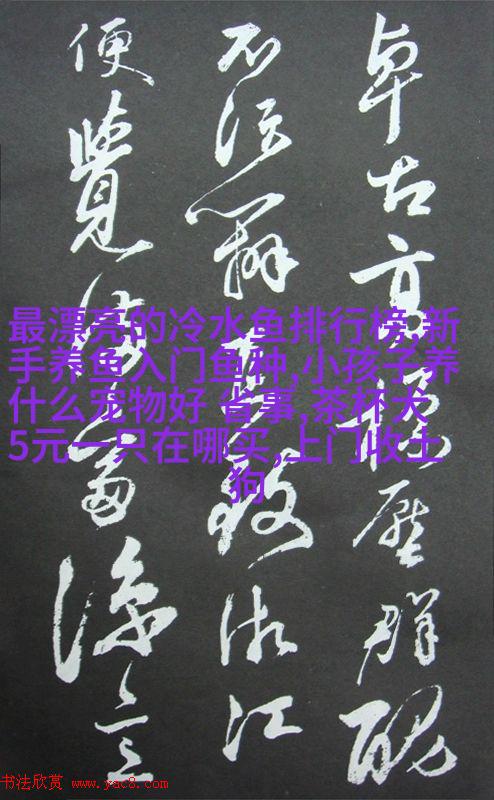 卓古高標壓群醜
致湘江
便覺
最漂亮的冷水鱼排行榜,新
手养鱼入门鱼种,小孩子养
什么宠物好 省事,茶杯犬
5元一只在哪买,上门收土
狗
书法欣赏 www.yac8.com